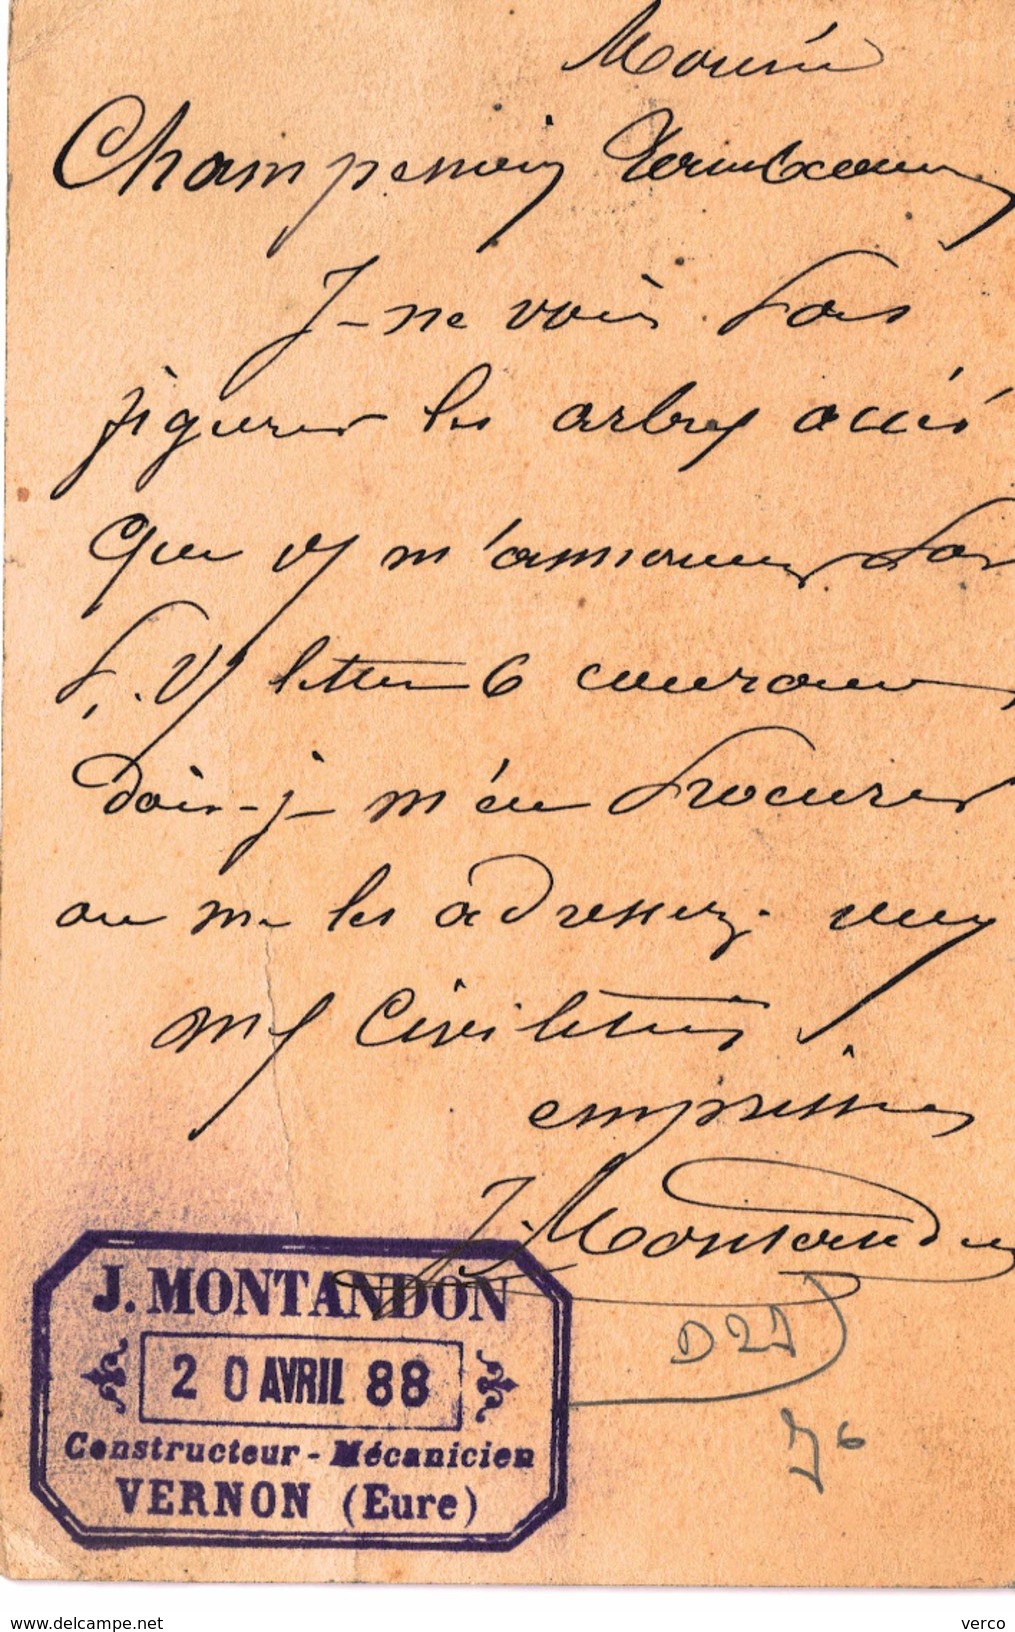 Messieurs
Champenois Rambeaux
Je ne vois pas
figurer les arbres acier
que vs m'annonciez par
p. Vs lettre 6 courant,
dois-je m'en procurer
ou me les adressez. recevez
mes civilités
empressées
J. Montandon
J. MONTANDON
20 AVRIL 88
Constructeur - Mécanicien
VERNON (Eure)
D27
J6
www.delcampe.net
verco